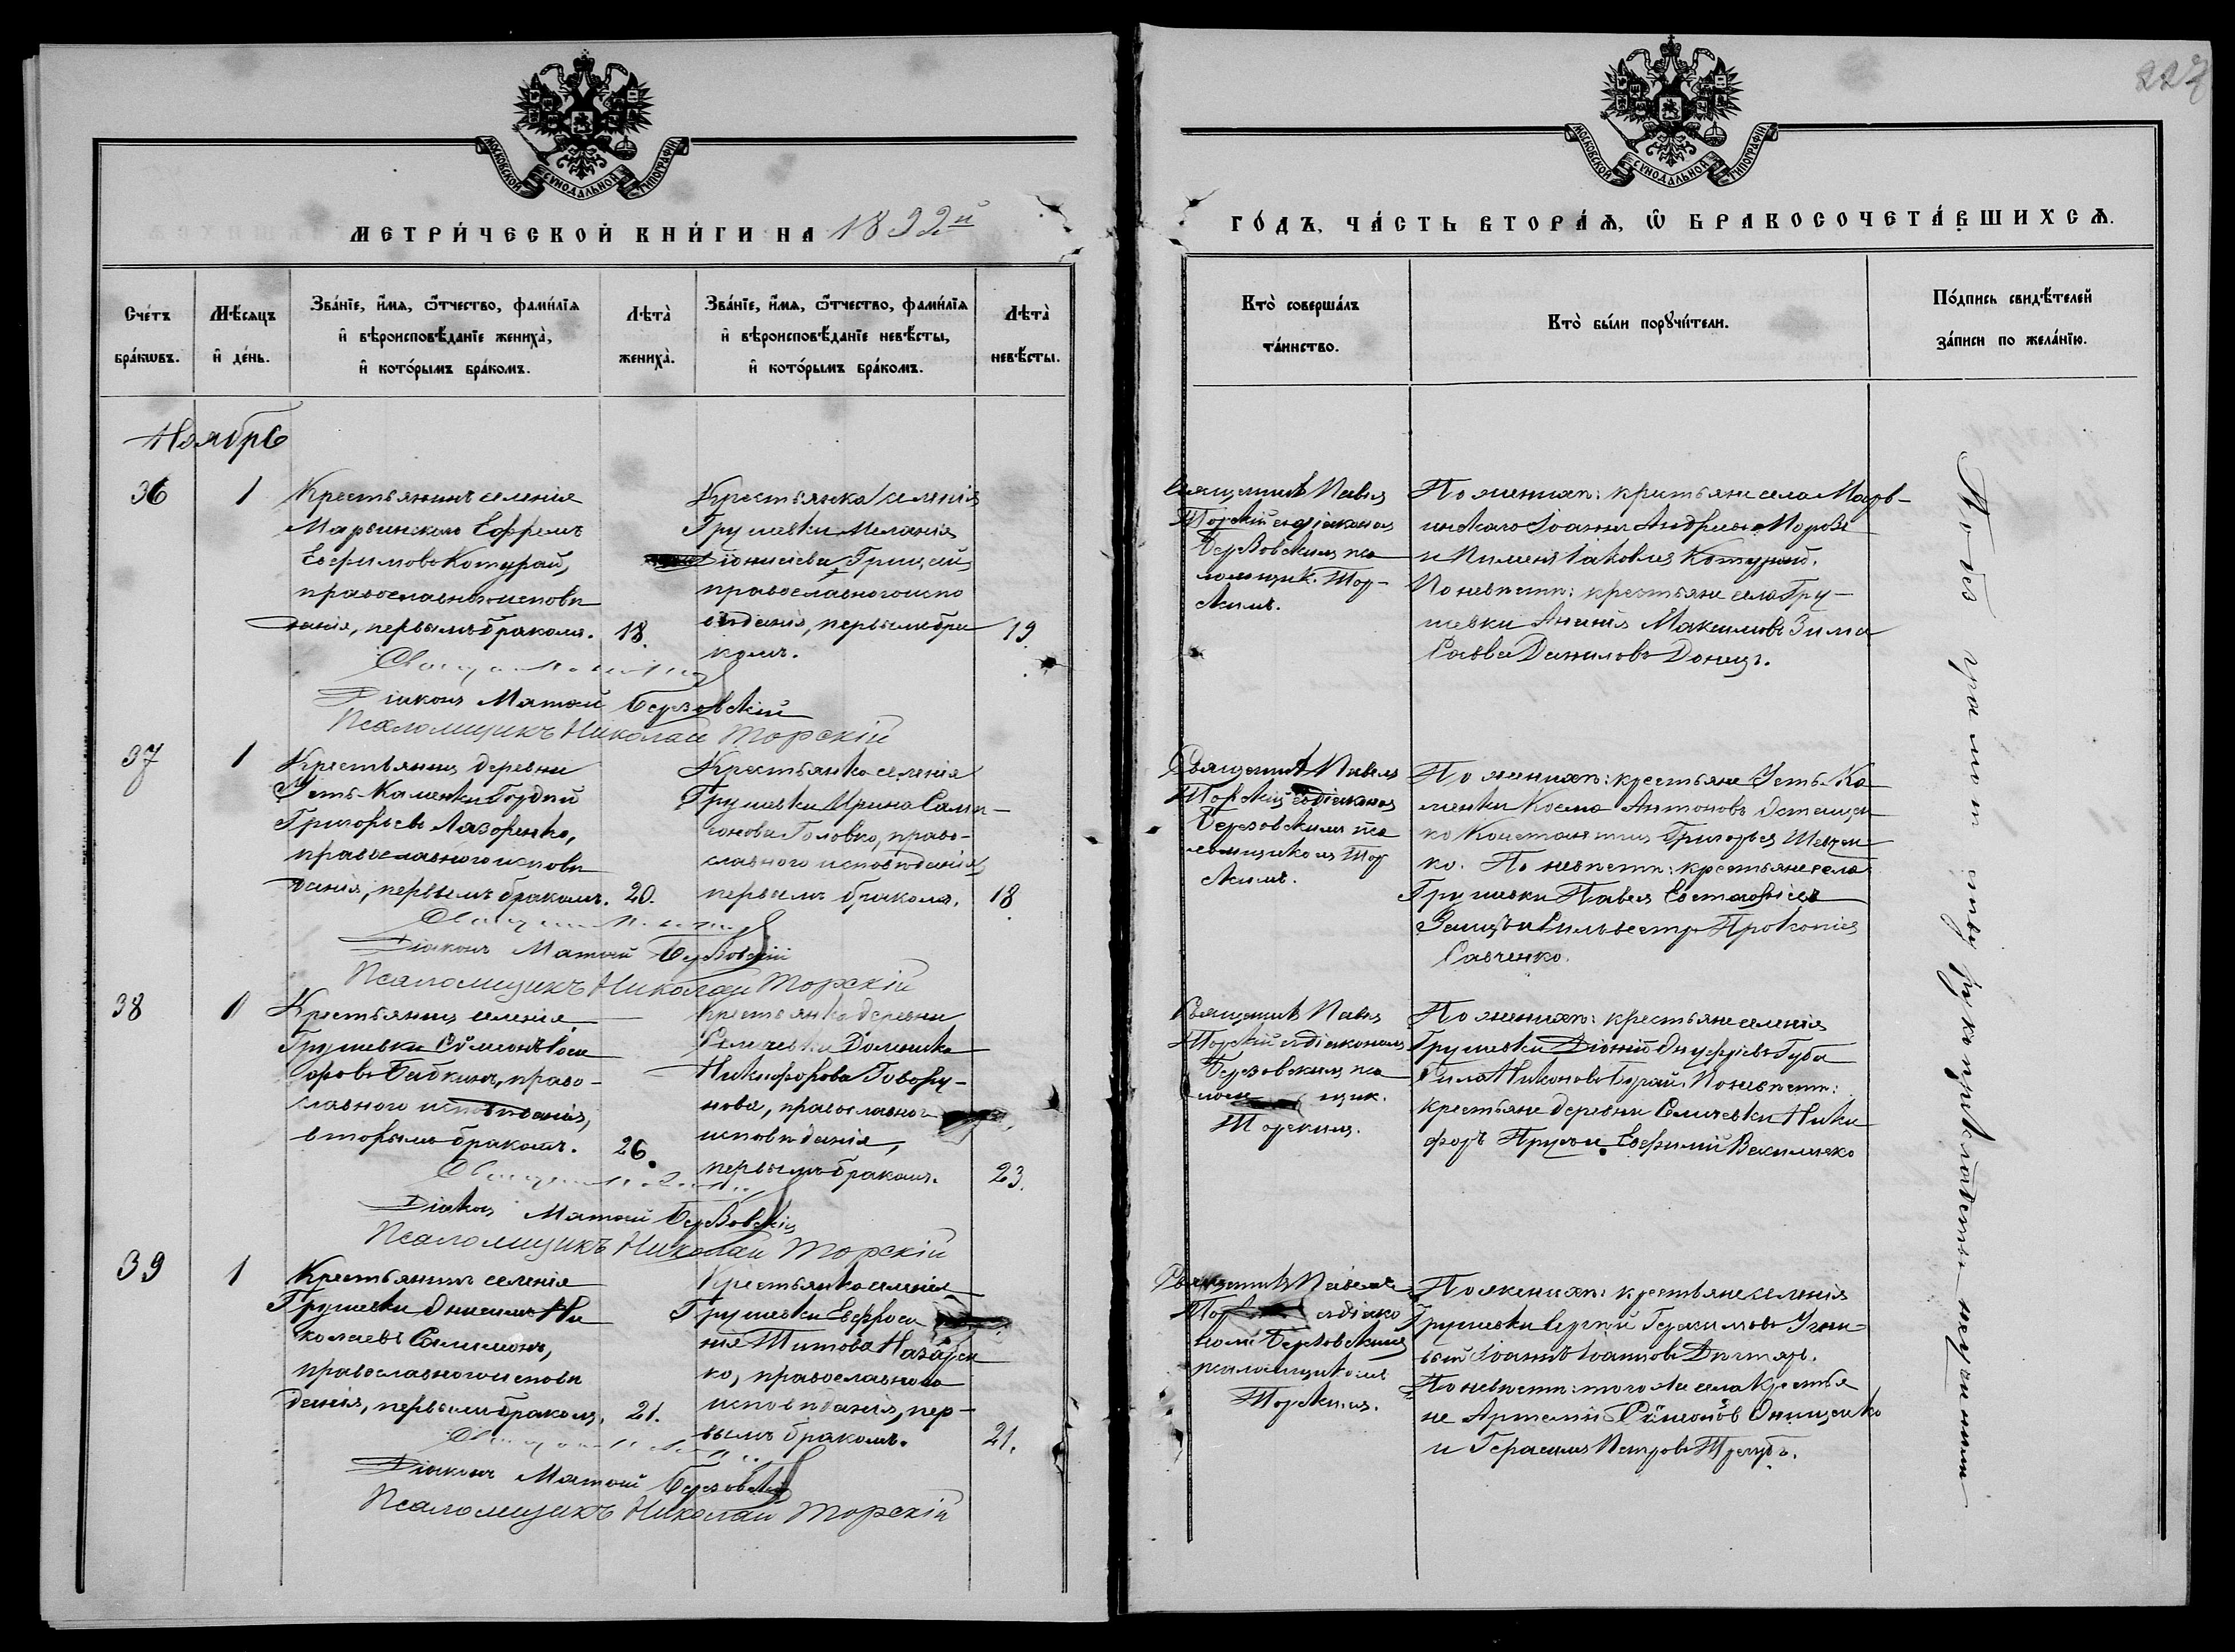 227
МОСКОВСКОЙ СѴНОДАЛЬНОЙ ТИПОГРАФІИ
МЕТРИ́ЧЕСКОЙ КНИ́ГИ НА 1892й
Сче́тъ бра́кѡвъ.
Мѣ́сяцъ и҆ де́нь.
Зва́нїе, и҆́мя, ѻ҆́тчество, фами́лїя
и҆ вѣроисповѣ́данїе жениха̀,
и҆ кото́рымъ бра́комъ.
Лѣта̀ жениха̀.
Зва́нїе, и҆́мя, ѻ҆́тчество, фами́лїя
и҆ вѣроисповѣ́данїе невѣ́сты,
и҆ кото́рымъ бра́комъ.
Лѣта̀ невѣ́сты.
Ноябрь
36
1
Крестьянинъ селенія
Марьинскаго Ефремъ
Евфимовъ Котурай,
православнаго исповѣ
данія, первымъ бракомъ.
18.
Крестьянка селенія
Грушевки Меланія
Діонисіева Грицай,
православнаго испо
вѣданія, первымъ бра
комъ.
19.
Діаконъ Матѳій Березовскій
Псаломщикъ Николай Торскій
37
1
Крестьянинъ деревни
Усть-Каменки Гордій
Григорьевъ Лазоренко,
православнаго исповѣ
данія, первымъ бракомъ.
20.
Крестьянка селенія
Грушевки Ирина Самп-
сонова Головко, право-
славнаго исповѣданія,
первымъ бракомъ.
18
Діаконъ Матѳій Березовскій
Псаломщикъ Николай Торскій
38
1
Крестьянинъ селенія
Грушевки Сѵмеонъ Іоси
фовъ Бабкинъ, право-
славнаго исповѣданія,
вторымъ бракомъ.
26.
Крестьянка деревни
Селичевки Домника
Никифорова Говору-
нова, православнаго
исповѣданія,
первымъ бракомъ.
23.
Діаконъ Матѳій Березовскій
Псаломщикъ Николай Торскій
39
1
Крестьянинъ селенія
Грушевки Онисимъ Ни
колаевъ
православнаго исповѣ
данія, первымъ бракомъ.
21.
Крестьянка селенія
Грушевки Евфроси
нія Титова Назарен
ко, православнаго
исповѣданія, пер-
вымъ бракомъ.
21.
Діаконъ Матѳій Березовскій
Псаломщикъ Николай Торскій
МОСКОВСКОЙ СѴНОДАЛЬНОЙ ТИПОГРАФІИ
ГО́ДЪ, ЧА́СТЬ ВТОРА́Ѧ, Ѡ҆ БРАКОСОЧЕТА́ВШИХСѦ.
Кто̀ соверша́лъ
та́инство.
Кто̀ бы́ли порꙋчи́тели.
По́дпись свидѣ́телей
за́писи по жела́нїю.
Священникъ Павелъ
Торскій съ діакономъ
Березовскимъ пса
ломщик. Тор-
скимъ.
По женихѣ: крестьяне села Марь-
инскаго Іоаннъ Андреевъ Морозъ
и Пименъ Іаковлев Котурай.
По невѣстѣ: крестьяне села Гру-
шевки Ананія Максимовъ Зима
Савва Даниловъ Донецъ.
Священникъ Павелъ
Торскій съ діакономъ
Березовскимъ пса
ломщикомъ Тор
скимъ.
По женихѣ: крестьяне Усть-Ка
менки Косма Антоновъ
ко Константинъ Григорьев Шевчен
ко. По невѣстѣ: крестьяне села
Грушевки Павелъ Евстафіевъ
Заяцъ и Сильвестр Прокопіев
Савченко.
Священникъ Павелъ
Торскій съ діакономъ
Березовскимъ пса
лом щик.
Торскимъ.
По женихѣ: крестьяне селенія
Грушевки Діонисій Онуфріевъ Губа
Сила Никоновъ Бурай. По невѣстѣ:
крестьяне деревни Селичевки Ники
форъ Евфимій
Священникъ Павелъ
Тор съ діако
номъ Березовскимъ
псаломщикомъ
Торскимъ.
По женихѣ: крестьяне селенія
Грушевки Сергѣй Герасимовъ
Іоаннъ Іоанновъ Дегтярь.
По невѣстѣ: того же села крестья
не Артемій Сѵмеоновъ Онищенко
и Герасимъ Петровъ
По безграмотству рукоприкладства не учинили